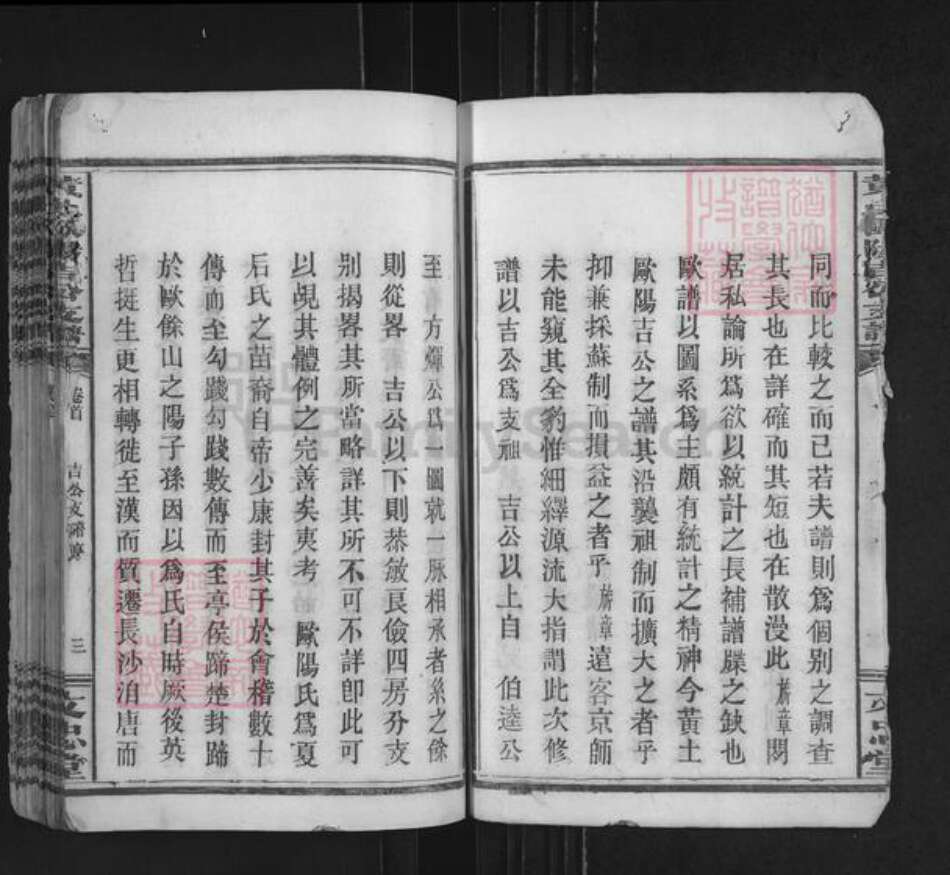 同而比較之而已若夫譜則爲個別之調查
其長也在詳確而其短也在散漫此旂章閎
居私論所爲欲以統計之長補譜牒之缺也
歐譜以圖系爲主頗有統計之精神今黃土
歐陽吉公之譜其沿襲祖制而擴大之者乎
抑兼採蘇制而損益之者乎旂章遠客京師
未能窺其全豹惟細繹源流大指謂此次修
譜以吉公爲支祖 吉公以上自 伯逵公
至 方燀公爲一圖就一脉相承者系之餘
則從畧 吉公以下則恭敏良儉四房分支
別揭畧其所當略詳其所不可不詳卽此可
以覘其體例之完善矣夷考 歐陽氏爲夏
后氏之苗裔自帝少康封其子於會稽數十
傳而至勾踐勾踐數傳而至亭侯蹄楚封蹄
於歐餘山之陽子孫因以爲氏自時厥後英
哲挺生更相轉徙至漢而質遷長沙洎唐而
卷首
吉公支譜序
三
文忠堂
FamilySearch